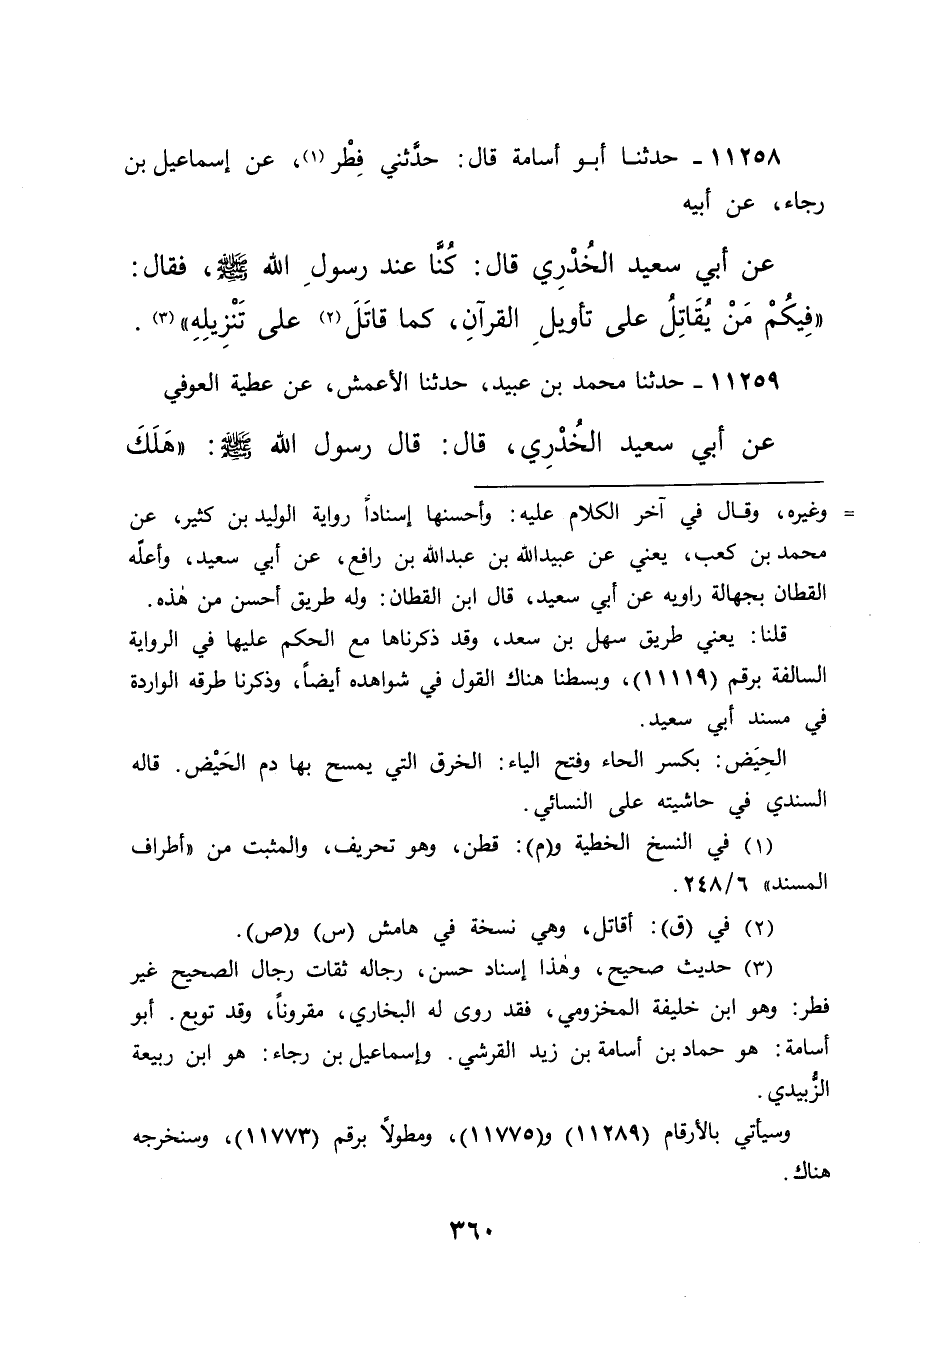 ١١٢٥٨ ـ حدثنـا أبـو أسامة قال: حدَّثني فِطْر (١)، عن إسماعيل بن
رجاء، عن أبيه
عن أبي سعيد الخُدْرِي قال: كُنَّا عند رسولِ الله ﷺ، فقال:
«فِيكُمْ مَنْ يُقَاتِلُ على تأويلِ القرآنِ، كما قاتَلَ (٢) على تَنْزِيلِهِ» (٣) .
١١٢٥٩ ـ حدثنا محمد بن عبيد، حدثنا الأعمش، عن عطية العوفي
عن أبي سعيد الخُدْرِي، قال: قال رسول الله ﷺ: «هَلَكَ
= وغيره، وقـال في آخر الكلام عليه: وأحسنها إسناداً رواية الوليد بن كثير، عن
محمد بن كعب، يعني عن عبيدالله بن عبدالله بن رافع، عن أبي سعيد، وأعلّه
القطان بجهالة راويه عن أبي سعيد، قال ابن القطان: وله طريق أحسن من هٰذه.
قلنا: يعني طريق سهل بن سعد، وقد ذكرناها مع الحكم عليها في الرواية
السالفة برقم (١١١١٩)، وبسطنا هناك القول في شواهده أيضاً، وذكرنا طرقه الواردة
في مسند أبي سعيد.
الحِيَض: بكسر الحاء وفتح الياء: الخرق التي يمسح بها دم الحَيْض. قاله
السندي في حاشيته على النسائي.
(١) في النسخ الخطية و(م): قطن، وهو تحريف، والمثبت من «أطراف
المسند» ٢٤٨/٦.
(٢) في (ق): أقاتل، وهي نسخة في هامش (س) و(ص).
(٣) حديث صحيح، وهٰذا إسناد حسن، رجاله ثقات رجال الصحيح غير
فطر: وهو ابن خليفة المخزومي، فقد روى له البخاري، مقروناً، وقد توبع. أبو
أسامة: هو حماد بن أسامة بن زيد القرشي. وإسماعيل بن رجاء: هو ابن ربيعة
الزُّبيدي.
وسيأتي بالأرقام (١١٢٨٩) و(١١٧٧٥)، ومطولاً برقم (١١٧٧٣)، وسنخرجه
هناك.
٣٦٠